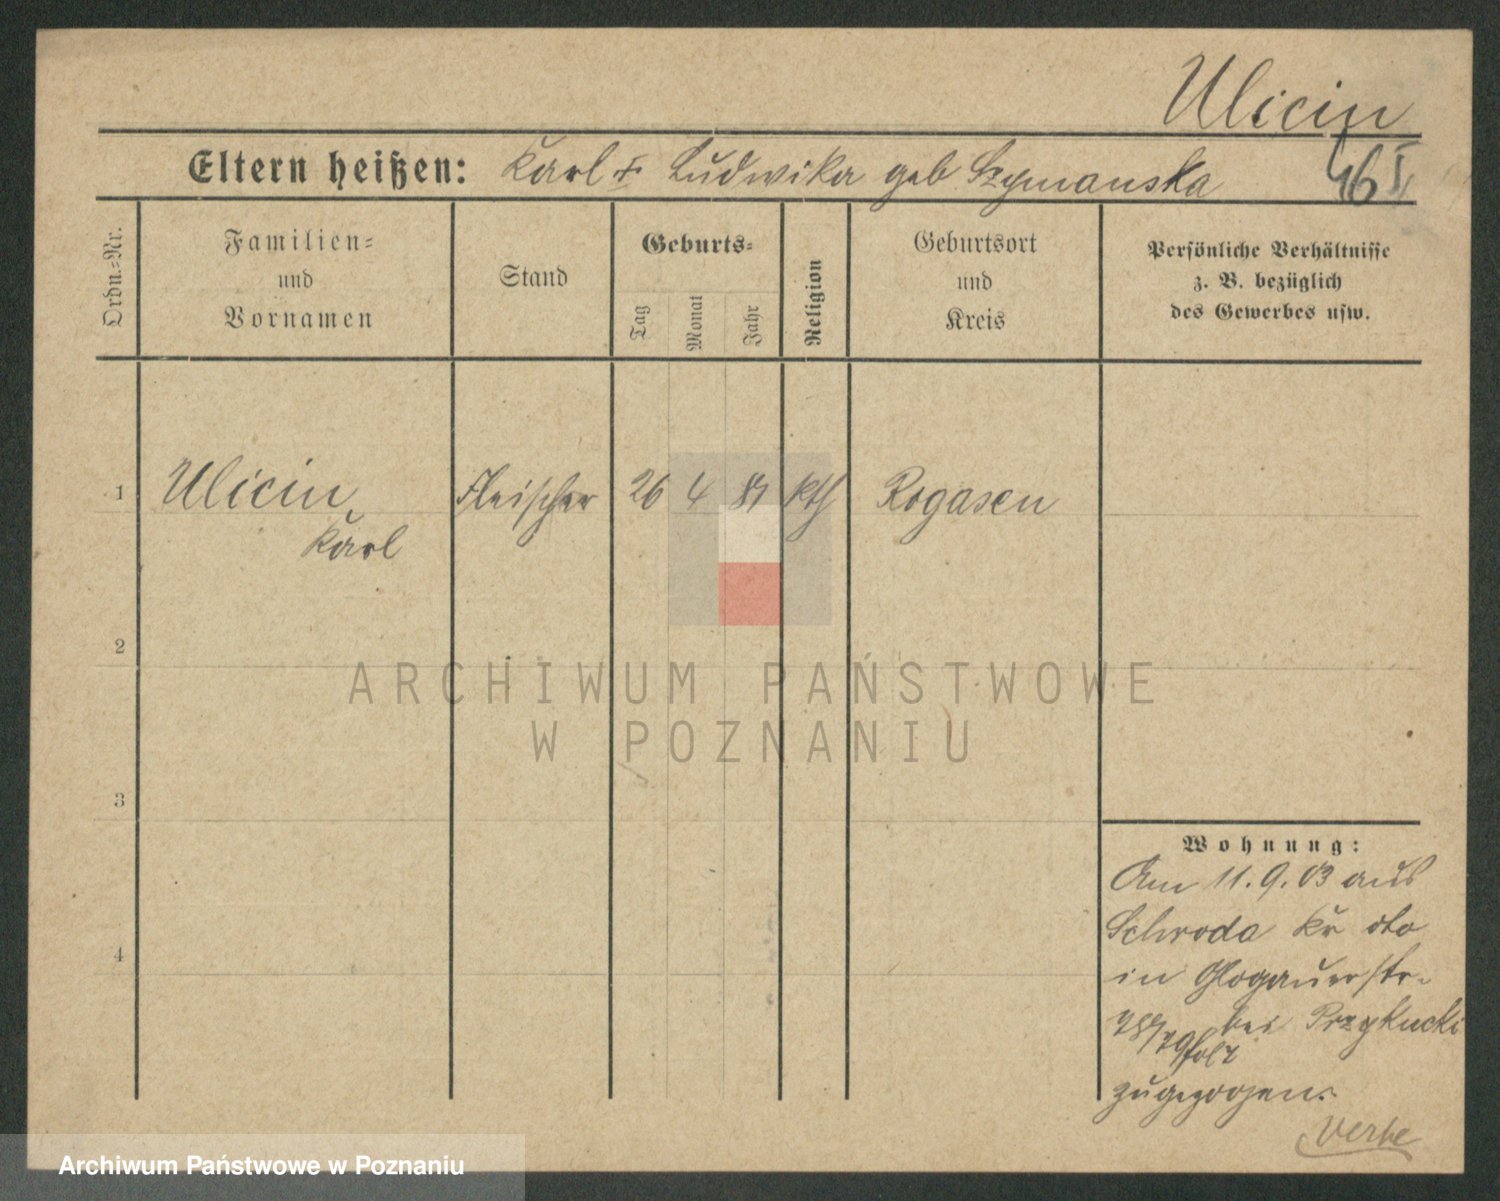 Ulicin
Eltern heißen: Karl + Ludwika geb Szymanska
Ordn.=Nr.
Familien=
und
Vornamen
Stand
Geburts=
Tag
Monat
Jahr
Religion
Geburtsort
und
Kreis
Persönliche Verhältnisse
z. B. bezüglich
des Gewerbes usw.
1 Ulicin, Fleischer 26 4 81 kth Rogasen
Karl
2
3
4
ARCHIWUM PAŃSTWOWE
W POZNANIU
Wohnung:
Am 11. 9. 03 aus
Schroda Kr dto
in Glogauerstr.
bei Przykucki
zugezogen.
Archiwum Państwowe w Poznaniu